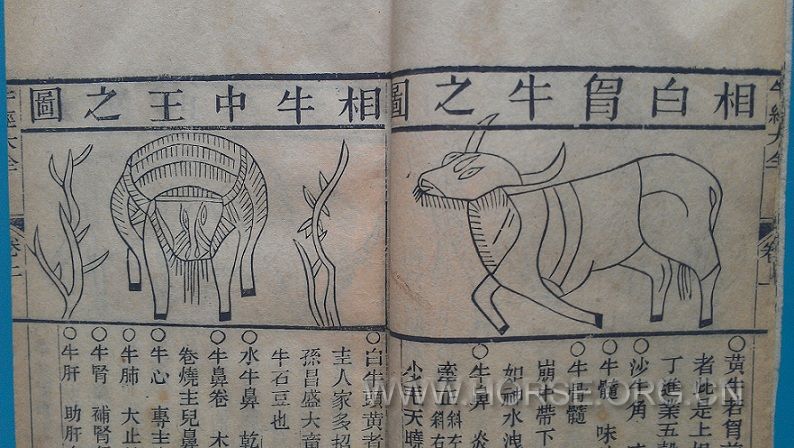 牛經大全
相白胷牛之圖
○黃牛若胷
者此是上
丁進業五穀
沙牛角
○牛髓 味
髓
崩中帶下
如 水洩
○牛鼻
斜左
斜右
天曉
相牛中王之圖
○白牛頭黃者
主人家多招
孫昌盛大
牛石豆也
○水牛鼻 乾
○牛鼻卷 木
卷燒主兒鼻
○牛心 專主
○牛肺 大止
○牛腎 補腎
○牛肝 助肝
牛經大全
WWW.HORSE.ORG.CN